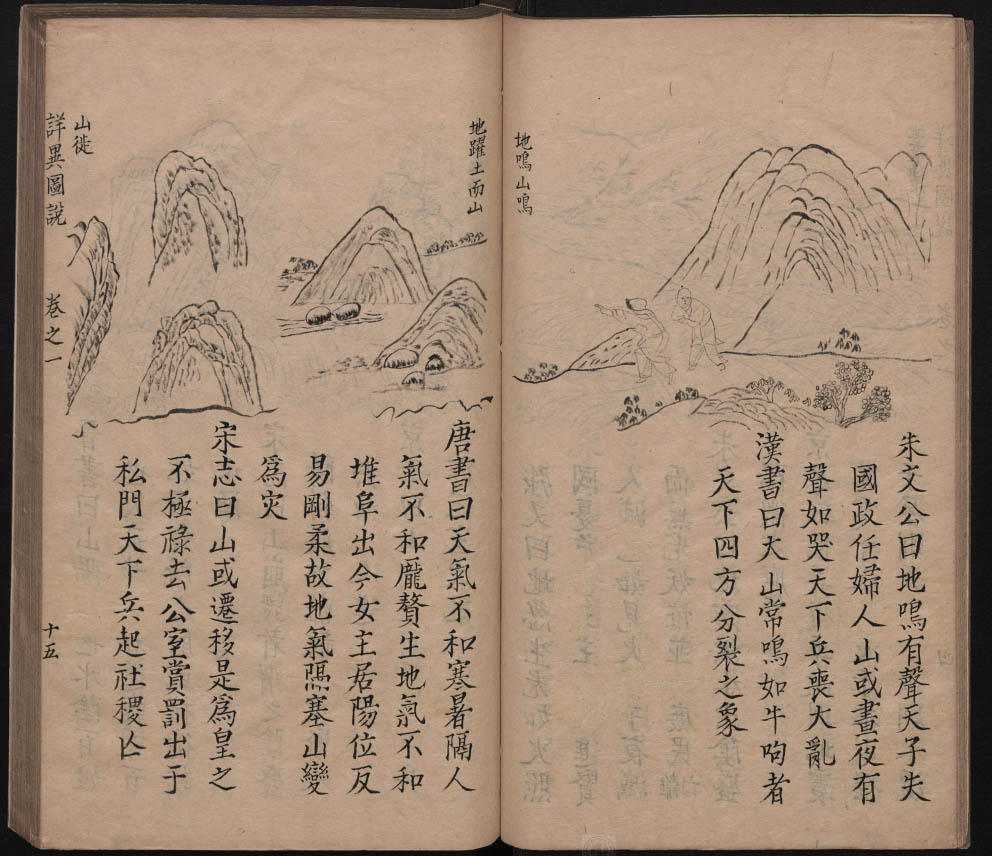 地鳴山鳴
朱文公曰地鳴有聲天子失
國政任婦人山或晝夜有
聲如哭天下兵喪大亂
漢書曰大山常鳴如牛呴者
天下四方分裂之象
地躍土而山
唐書曰天氣不和寒暑隔人
氣不和龐贅生地氣不和
堆阜出今女主居陽位反
易剛柔故地氣隔塞山變
爲灾
宋志曰山或遷移是爲皇之
不極祿去公室賞罰出于
私門天下兵起社稷亾
山徙
詳異圖說　卷之一　十五